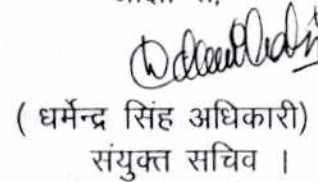 ( धर्मेन्द्र सिंह अधिकारी)
संयुक्त सचिव ।